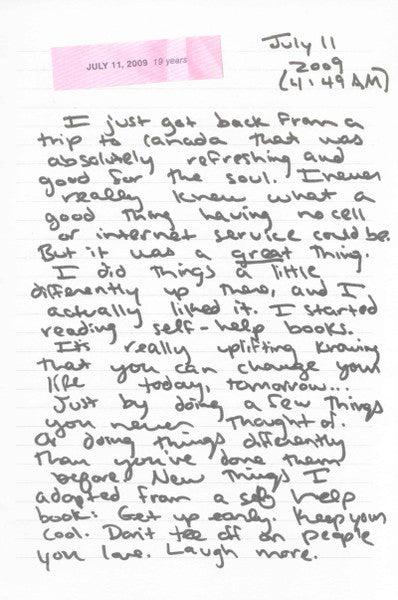 JULY 11, 2009 19 years
July 11
2009
(4:49 AM)
I just got back from a
trip to Canada that was
absolutely refreshing and
good for the soul. I never
really knew what a
good thing having no cell
or internet service could be.
But it was a great thing.
I did things a little
differently up there, and I
actually liked it. I started
reading self-help books.
It's really uplifting knowing
that you can change your
life today, tomorrow...
Just by doing a few things
you never thought of.
Or doing things differently
than you've done them
before. New things I
adopted from a self help
book: Get up early. Keep your
cool. Don't tee off on people
you love. Laugh more.